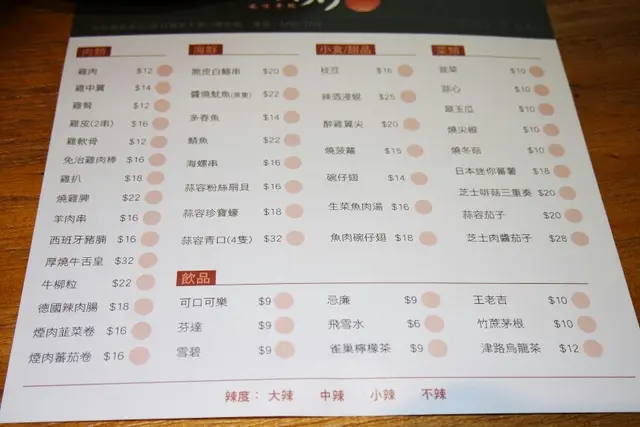 肉類
雞肉 $12
雞中翼 $14
雞腎 $12
雞皮(2串) $16
雞軟骨 $12
免治雞肉棒 $16
雞扒 $18
燒雞髀 $22
羊肉串 $16
西班牙豬腩 $16
厚燒牛舌皇 $32
牛柳粒 $22
德國辣肉腸 $18
煙肉韮菜卷 $16
煙肉蕃茄卷 $16
海鮮
脆皮白鱔串 $20
醬燒魷魚(原隻) $22
多春魚 $14
鯖魚 $22
海螺串 $16
蒜容粉絲扇貝 $16
蒜容珍寶蠔 $18
蒜容青口(4隻) $32
小食/甜品
枝豆 $16
辣酒浸蜆 $25
醉雞翼尖 $20
燒菠蘿 $15
碗仔翅 $14
生菜魚肉湯 $16
魚肉碗仔翅 $18
菜類
韮菜 $10
$10
翠玉瓜 $10
燒尖椒 $10
燒冬菇 $10
日本迷你蕃薯 $18
芝士啡菇三重奏 $20
蒜容茄子 $20
芝士肉醬茄子 $28
飲品
可口可樂 $9
芬達 $9
雪碧 $9
忌廉 $9
飛雪水 $6
雀巢檸檬茶 $9
王老吉 $10
竹蔗茅根 $10
津路烏龍茶 $12
辣度： 大辣 中辣 小辣 不辣